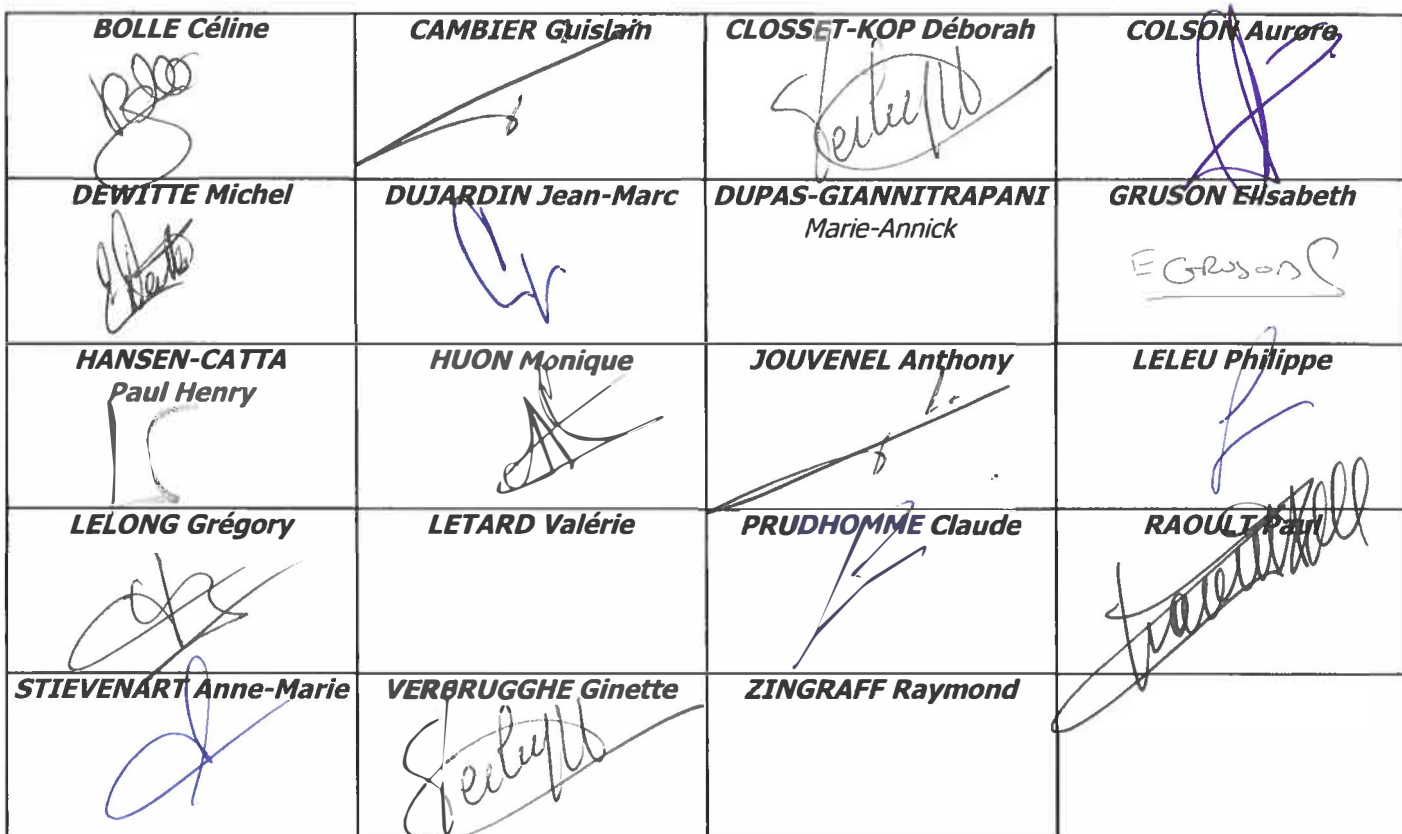 BOLLE Céline
CAMBIER Guislain
CLOSSET-KOP Déborah
COLSON Aurore
DEWITTE Michel
DUJARDIN Jean-Marc
DUPAS-GIANNITRAPANI
Marie-Annick
GRUSON Elisabeth
E GRUSON
HANSEN-CATTA
Paul Henry
HUON Monique
JOUVENEL Anthony
LELEU Philippe
LELONG Grégory
LETARD Valérie
PRUDHOMME Claude
RAOULT Paul
STIEVENART Anne-Marie
VERBRUGGHE Ginette
ZINGRAFF Raymond